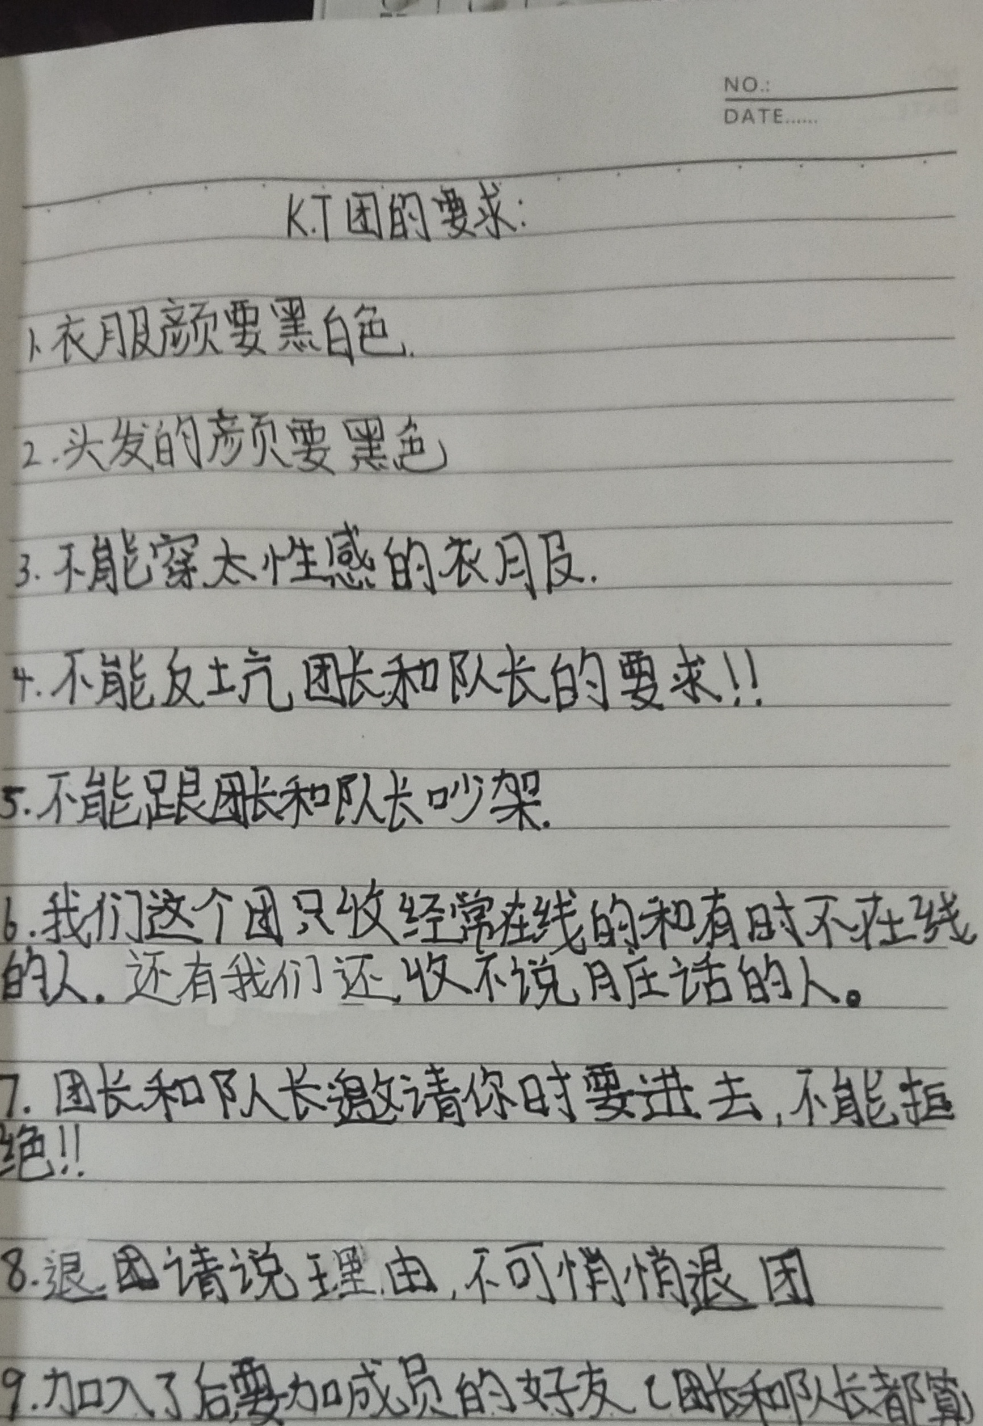 NO.:
DATE......
K.T团的要求:
1.衣服颜要黑白色.
2.头发的颜要黑色
3.不能穿太性感的衣服.
4.不能反坑团长和队长的要求!!
5.不能跟团长和队长吵架.
6.我们这个团只收经常在线的和有时不在线
的人.还有我们还收不说脏话的人。
7.团长和队长邀请你时要进去,不能拒
绝!!
8.退团请说理由,不可悄悄退团
9.加入了后要加成员的好友(团长和队长都算